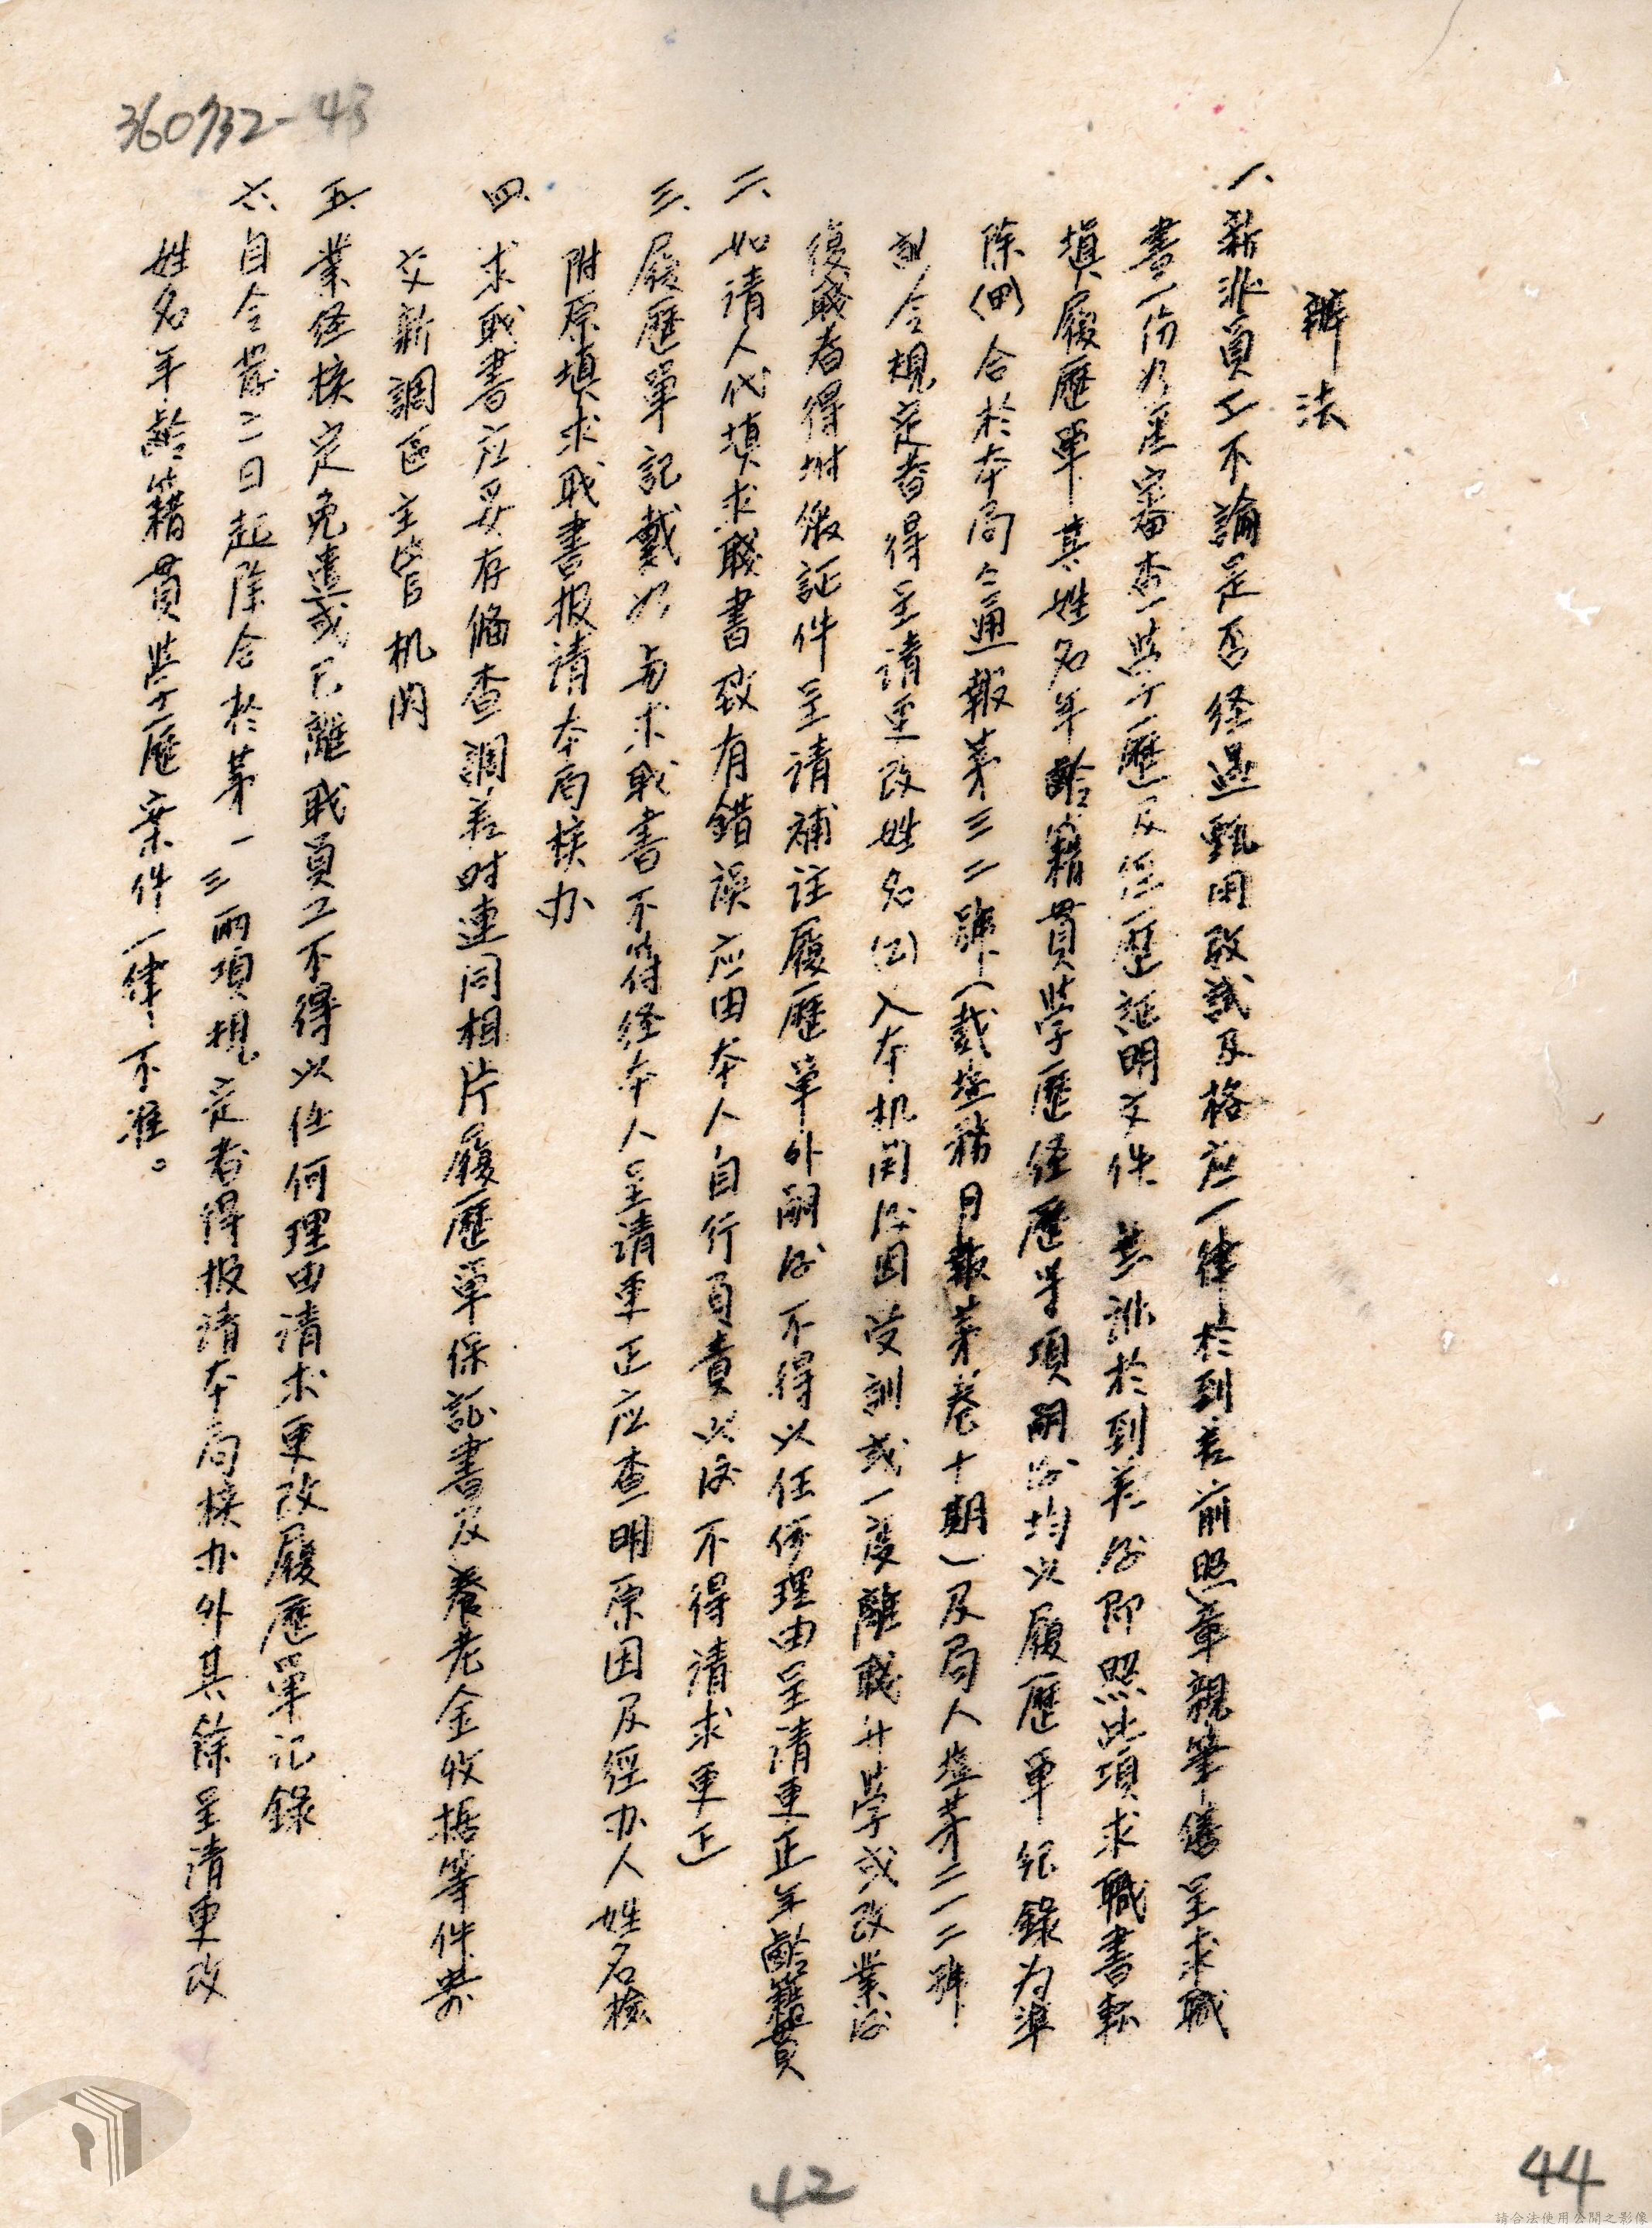 360732-43
辦法
一、新派員工不論是否経過甄用攷試及格应一律於到差前照章親筆繕呈求職
書一份以憑審查学歷及经歷証明文件 其派於到差后即照此項求職書転
填履歷單其姓名年齡籍貫学歷经歷等項嗣后均以履歷單紀錄为準
除(甲)合於本局仝通報苐三二號(載塩務月報苐卷十期)及局人塩苐二一二號
訓令規定者得呈请更改姓名(乙)入本机関后因受訓或一度離職升学或改業后
復職者得坿繳証件呈请補註履歷單外嗣后不得以任何理由呈请更正年齡籍貫
二、如请人代填求職書致有錯誤应由本人自行負責以後不得请求更正
三、履歷單記載如与求职書不符経本人呈请更正应查明原因及經办人姓名檢
附原填求职書报请本局核办
四、求职書应妥存备查調差时連同相片履歷單保証書及养老金收据等件寄
交新調區主管机関
五、業経核定免遣或已離职員工不得以任何理由请求更改履歷單记錄
六、自令發之日起除合於苐一三兩項規定者得报请本局核办外其餘呈请更改
姓名年齡籍貫学歷案件一律不准。
42
44
請合法使用公開之影像